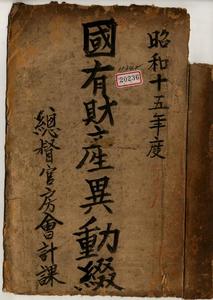 昭和十五年度
國有財産異動綴
20236
總督官房會計課